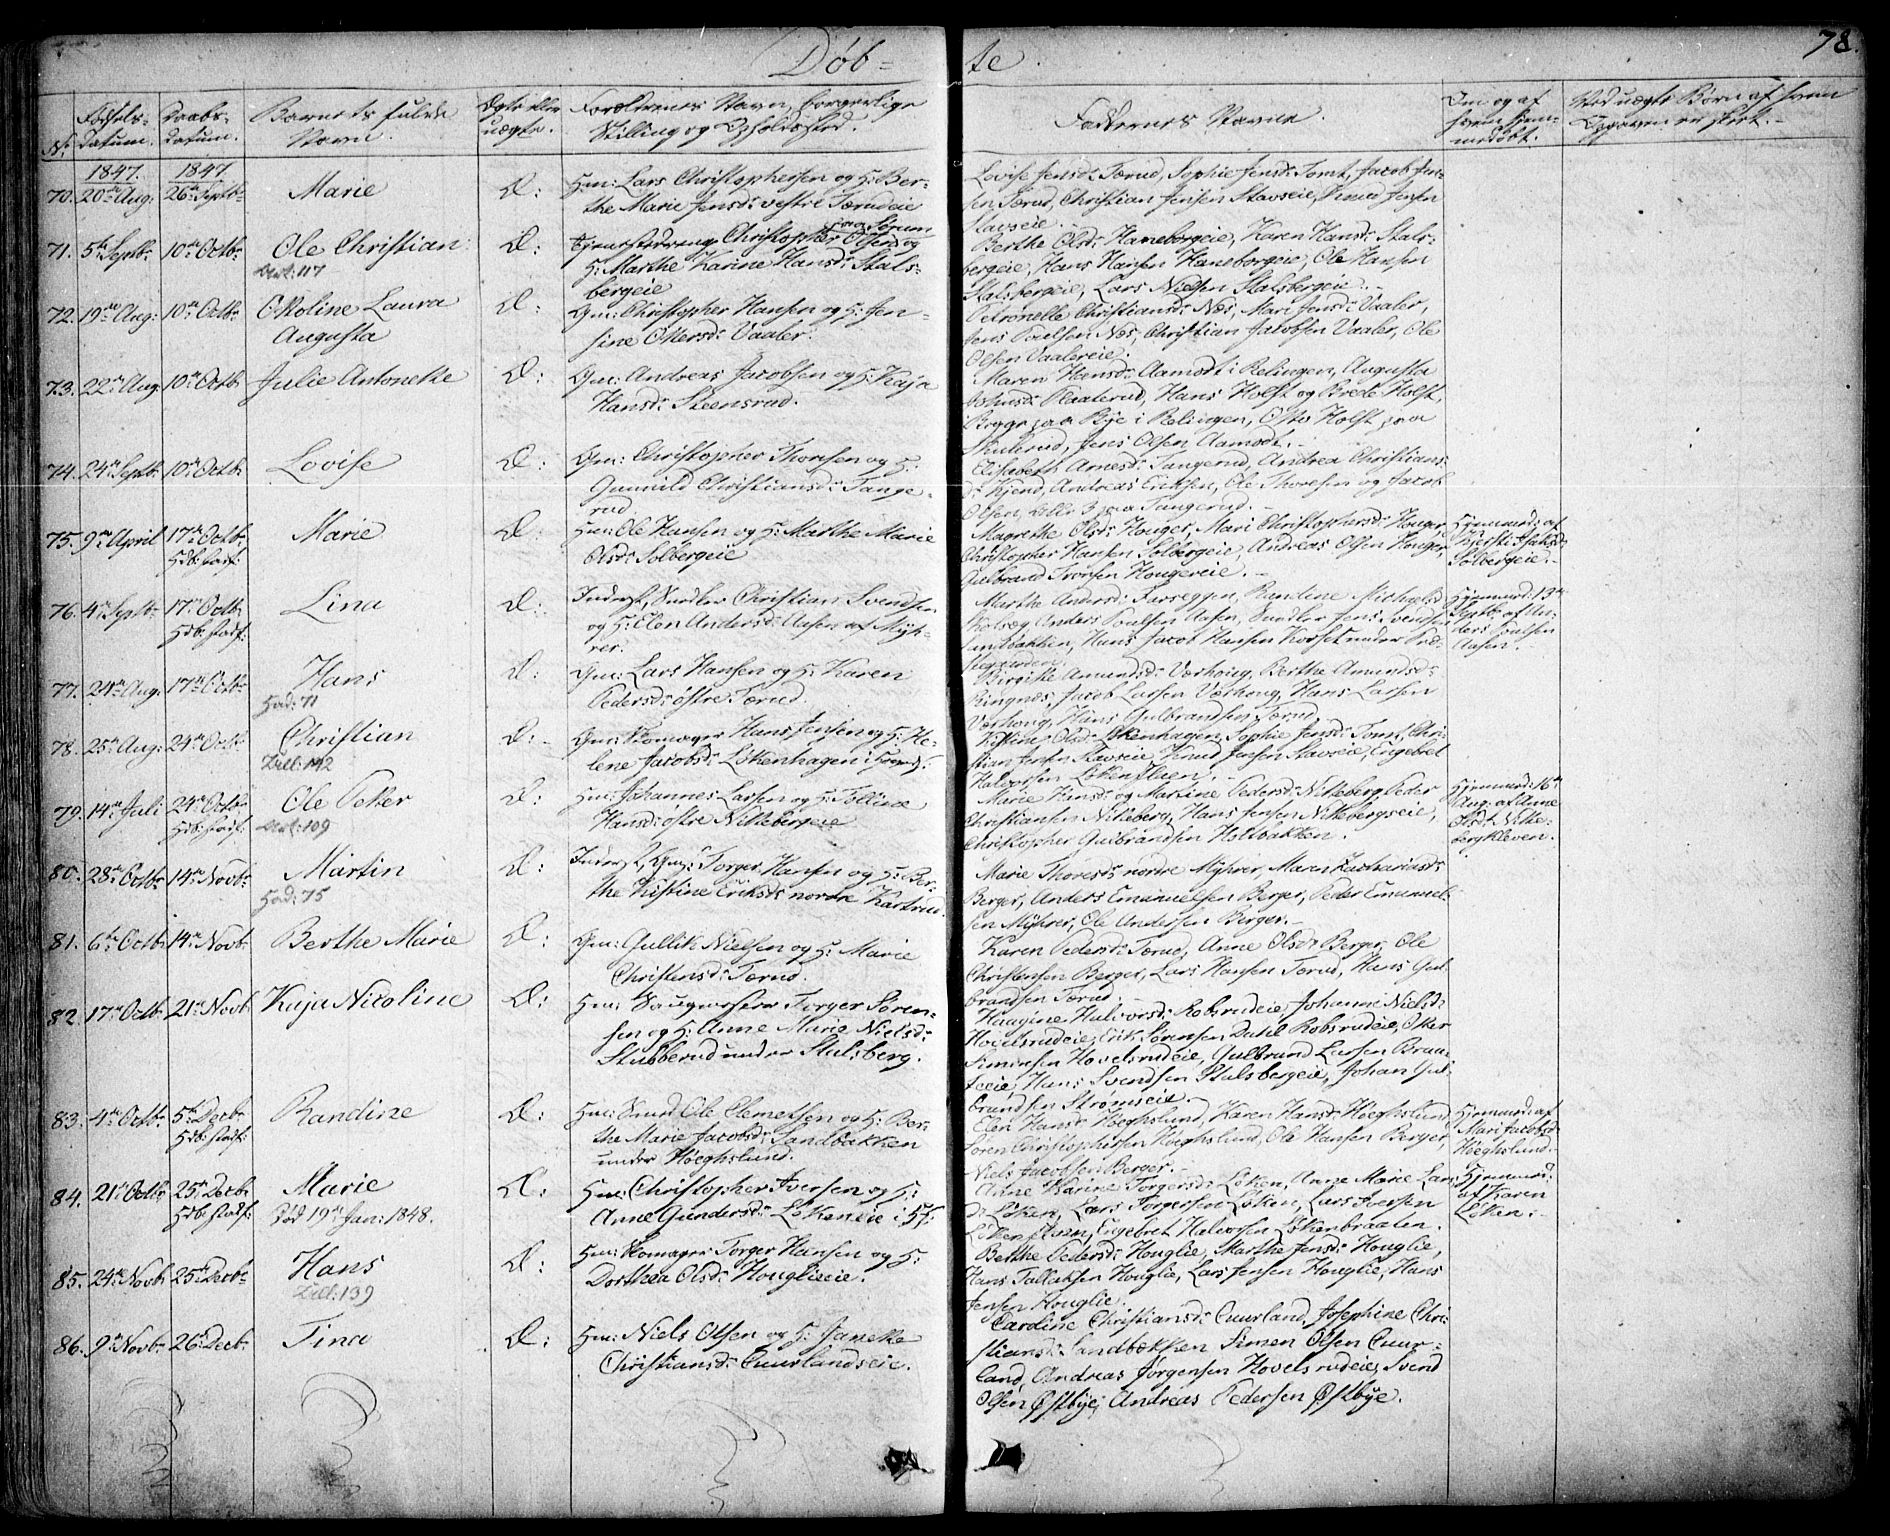 Døbte.
78.
No.
Fødsels-Datum.
Daabs-Datum.
Barnets fulde Navn.
Ægte eller uægte.
Forældrenes Navn, borgerlige Stilling og Opholdssted.
Faddernes Navne.
Om og af hvem hjemmedøbt.
Ved uægte Børn af hvem Opgaven er skeet.
1847. 1847.
70. 20de Aug: 26de Septbr Marie Æ: Hm: Lars Christophersen og H: Ber-
the Marie Jensd: vestre Tærudeie
Lovise Jensd: Tærud, Sophie Jensd: Tomt, Jacob Jen-
sen Tærud, Christian Jensen Stavseie, Knud Jensen
Stavseie.
71. 5te Septbr 10de Octbr Ole Christian Æ: Tjenestedreng Christopher Olsen paa Sørum og
Uul: 117
H: Marthe Karine Hansd: Stals-
bergeie
Berthe Olsd: Haneborgeie, Karen Hansd: Stals-
bergeie, Hans Hansen Haneborgeie, Ole Hansen
Stalsbergeie, Lars Nielsen Stalsbergeie.
72. 19de Aug: 10de Octbr Oline Laura Æ: Gm: Christopher Hansen og H: Jen-
Augusta
sine Ottersd: Vaaler.
Petronelle Christiansd: Næs, Mari Jensd: Vaaler,
Jens Poulsen Næs, Christian Jacobsen Vaaler, Ole
Olsen Vaalereie.
73. 22de Aug: 10de Octbr Julie Antonette Æ: Gm: Andreas Jacobsen og H: Kaja
Hansd: Steensrud.
Maren Hansd: Aamodt i Relingen, Augusta
Plaaterud, Hans Holst og Brede Holst,
Brygge paa Bye i Relingen, Otto Holst paa
Skulerud, Jens Olsen Aamodt.
74. 24de Septbr 10de Octbr Lovise Æ: Gm: Christopher Thoresen og H:
Gunnild Christiansd: Tange-
rud.
Elisabeth Arnesd: Tangerud, Andrea Christians-
d: Kjend, Andreas Eriksen, Ole Thoresen og Jacob
Olsen, alle 3 paa Tangerud.
75. 9de April 17de Octbr Marie Æ: Hm: Ole Hansen og H: Marthe Marie
Hdb: stadf:
Olsd: Solbergeie
Magrethe Olsd: Houger, Mari Christophersd: Houger,
Christopher Hansen Solbergeie, Andreas Olsen Houger,
Gulbrand Iversen Hougereie.
Hjemmed: af
Kjersti Isaksd:
Solbergeie.
76. 4de Septbr 17de Octbr Lina Æ: Inderst, Snedker Christian Svendsen
Hdb: stadf:
og H: Elen Andersd: Aasen af Myh-
rer.
Marthe Andersd: Farseggen, Randine Michelsd:
Anders Poulsen Aasen, Snedker Jens Svendsen
Hans Jacob Hansen Korset under
Hjemmed: 13de
Septbr af An-
ders Poulsen
Aasen.
77. 24de Aug: 17de Octbr Hans Æ: Gm: Lars Hansen og H: Karen
Had: 71
Pedersd: østre Tærud.
Birgitte Amundsd: Værhoug, Berthe Amundsd:
Ringnæs, Jacob Larsen Værhoug, Hans Larsen
Værhoug, Hans Gulbrandsen Tærud.
78. 25de Aug: 24de Octbr Christian Æ: Gm: Skomager Hans Jensen og H: He-
Lill: 142
lene Jacobsd: Løkenhagen i
Kistine Olsd: Løkenhagen, Sophie Jensd: Tomt, Chri-
stian Jensen Stavseie, Knud Jensen Stavseie, Engebret
Halvorsen Løkenstuen.
79. 14de Juli 24de Octbr Ole Peter Æ: Hm: Johannes Larsen og H: Tolline
Hdb: stadf: Uul: 109
Hansd: østre Nittebergeie
Marie Hansd: og Martine Pedersd: Nitteberg, Peder
Christiansen Nitteberg, Hans Jensen Nittebergseie,
Christopher Gulbrandsen Holtbakken.
Hjemmed: 16de
Aug: af Anne
Olsd: Nitte-
bergkleven.
80. 28de Octbr 14de Novbr Martin Æ: Inderst, Gm: Torger Hansen og H: Ber-
Had: 75
the Kistine Eriksd: nordre Kartrud.
Marie Thoresd: nordre Myhrer, Maren Zachariasd:
Berger, Anders Emanuelsen Berger, Peder Emanuel-
sen Myhrer, Ole Andersen Berger.
81. 6te Octbr 14de Novbr Berthe Marie Æ: Gm: Gullik Nielsen og H: Marie
Christensd: Tærud.
Karen Pedersd: Tærud, Anne Olsd: Berger, Ole
Christensen Berger, Lars Hansen Tærud, Hans Gul-
brandsen Tærud.
82. 17de Octbr 21de Novbr Kaja Nicoline Æ: Hm: Saugmester Torger Søren-
sen og H: Anne Marie Nielsd:
Stubberud under Stalsberg.
Haagine Halvorsd: Robsrudeie, Johanne Nielsd:
Hovelsrudeie, Erik Sørensen Dahl Robsrudeie, Otter
Simensen Hovelsrudeie, Gulbrand Larsen Braa-
teeie, Hans Svendsen Stalsbergeie, Johan Gul-
brandsen Strømseie.
83. 4de Octbr 5te Decbr Randine Æ: Hm: Smed Ole Clemetsen og H: Ber-
Hdb: stadf:
the Marie Jacobsd: Sandbækken
under Höeghslund.
Elen Hansd: Höeghslund, Karen Hansd: Höeghslund,
Søren Christophersen Höeghslund, Ole Hansen Berger,
Niels Jacobsen Berger.
Hjemmed: af
Mari Jacobsd:
Höeghslund.
84. 21de Octbr 25de Decbr Marie Æ: Hm: Christopher Iversen og H:
Hdb: stadf: Død 19de Jan: 1848.
Anne Gundersd: Løkeneie i Hf.
Anne Karine Torgersd: Løken, Anne Marie Lars-
d: Løken, Lars Torgersen Løken, Lars Iversen
Løkenstuen, Engebret Halvorsen Løkenbraaten.
Hjemmed:
af Karen
Løken.
85. 24de Novbr 25de Decbr Hans Æ: Hm: Skomager Torger Hansen og H:
Lill: 139
Dorthea Olsd: Houglieeie.
Berthe Pedersd: Houglie, Marthe Jensd: Houglie,
Hans Tallaksen Houglie, Lars Jensen Houglie, Hans
Jensen Houglie.
86. 9de Novbr 26de Decbr Tina Æ: Hm: Niels Olsen og H: Janette
Christiansd: Cuurlandseie.
Cardine Christiansd: Cuurland, Josephine Chri-
stiansd: Sandbækken, Simen Olsen Cuur-
land, Andreas Jørgensen Hovelsrudeie, Svend
Olsen Østbye, Andreas Pedersen Østbye.